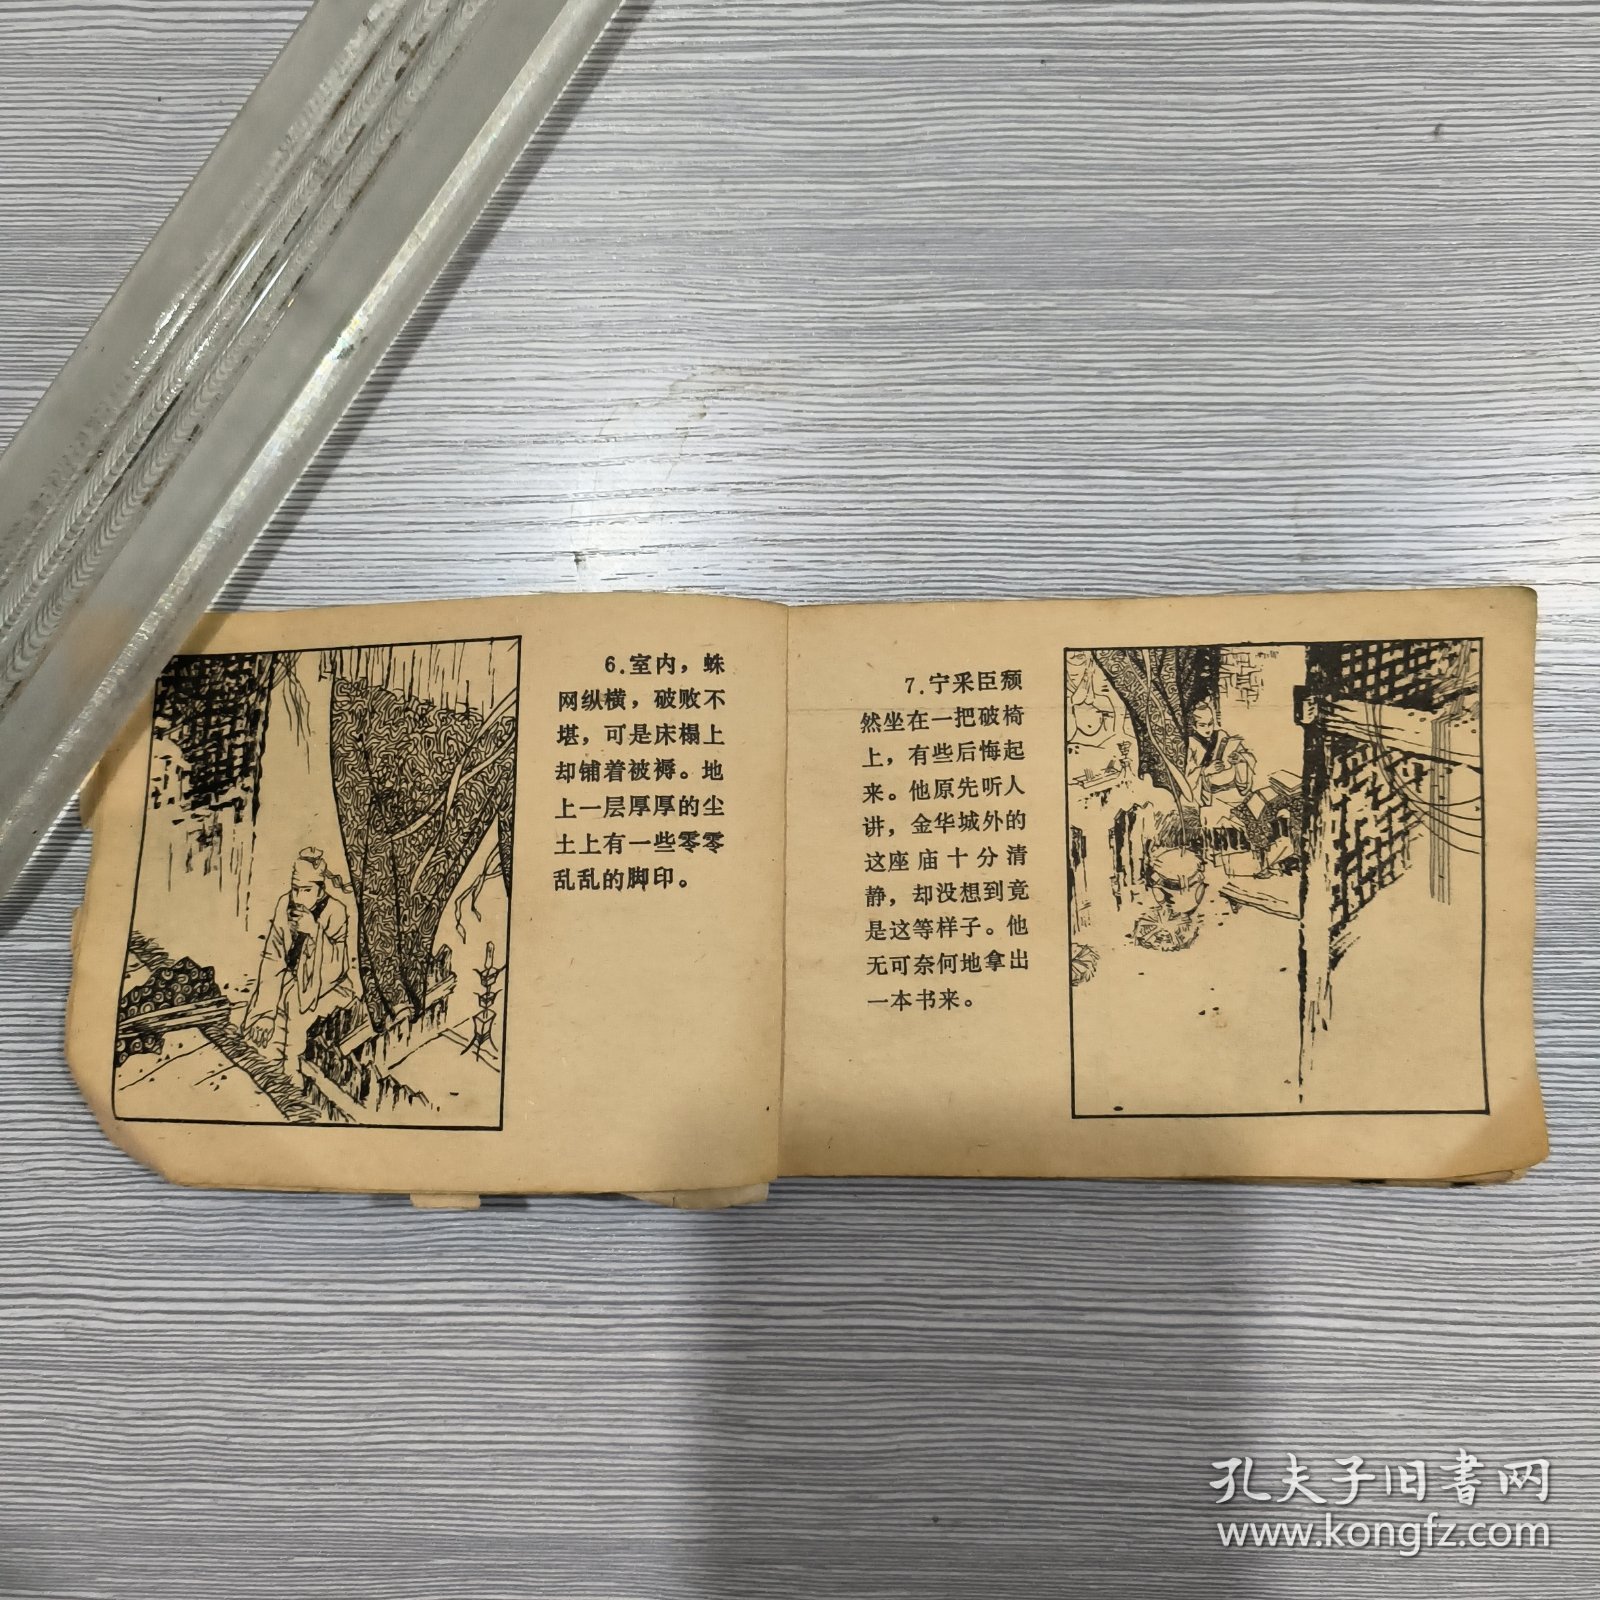 6.室内，蛛
网纵横，破败不
堪，可是床榻上
却铺着被褥。地
上一层厚厚的尘
土上有一些零零
乱乱的脚印。
7.宁采臣颓
然坐在一把破椅
上，有些后悔起
来。他原先听人
讲，金华城外的
这座庙十分清
静，却没想到竟
是这等样子。他
无可奈何地拿出
一本书来。
孔夫子旧书网
www.kongfz.com